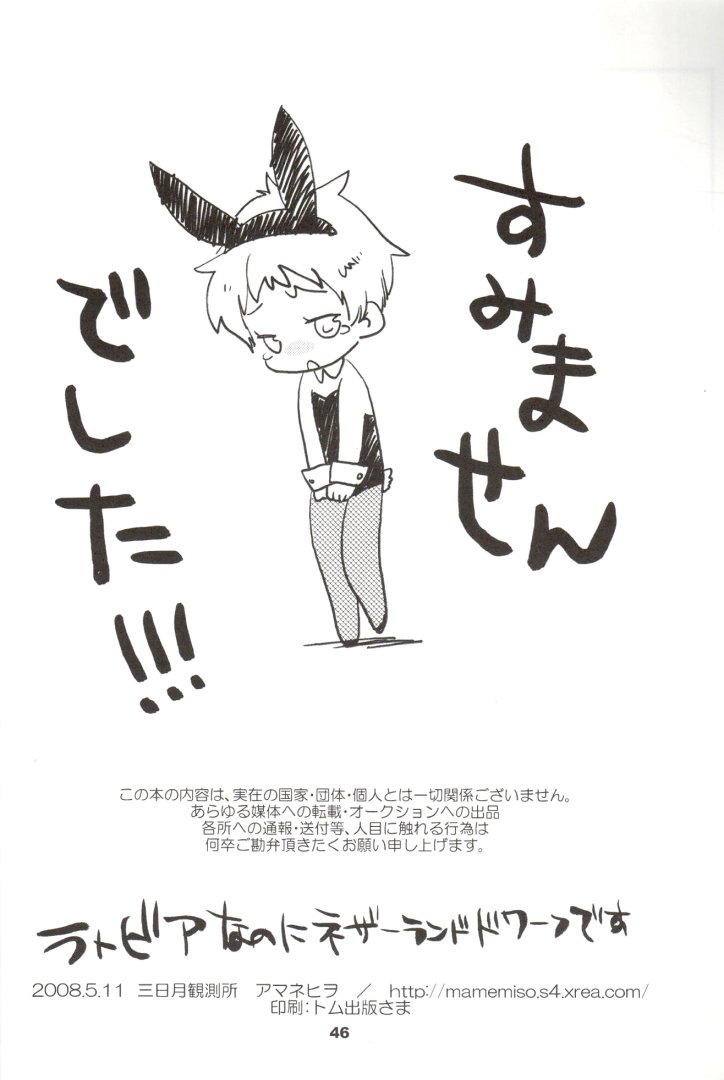 すみません
でした!!!
この本の内容は、実在の国家・団体・個人とは一切関係ございません。
あらゆる媒体への転載・オークションへの出品
各所への通報・送付等、人目に触れる行為は
何卒ご勘弁頂きたくお願い申し上げます。
ラトビアなのにネザーランドドワーフです
2008.5.11 三日月観測所 アマネヒヲ ／ http://mamemiso.s4.xrea.com/
印刷:トム出版さま
46